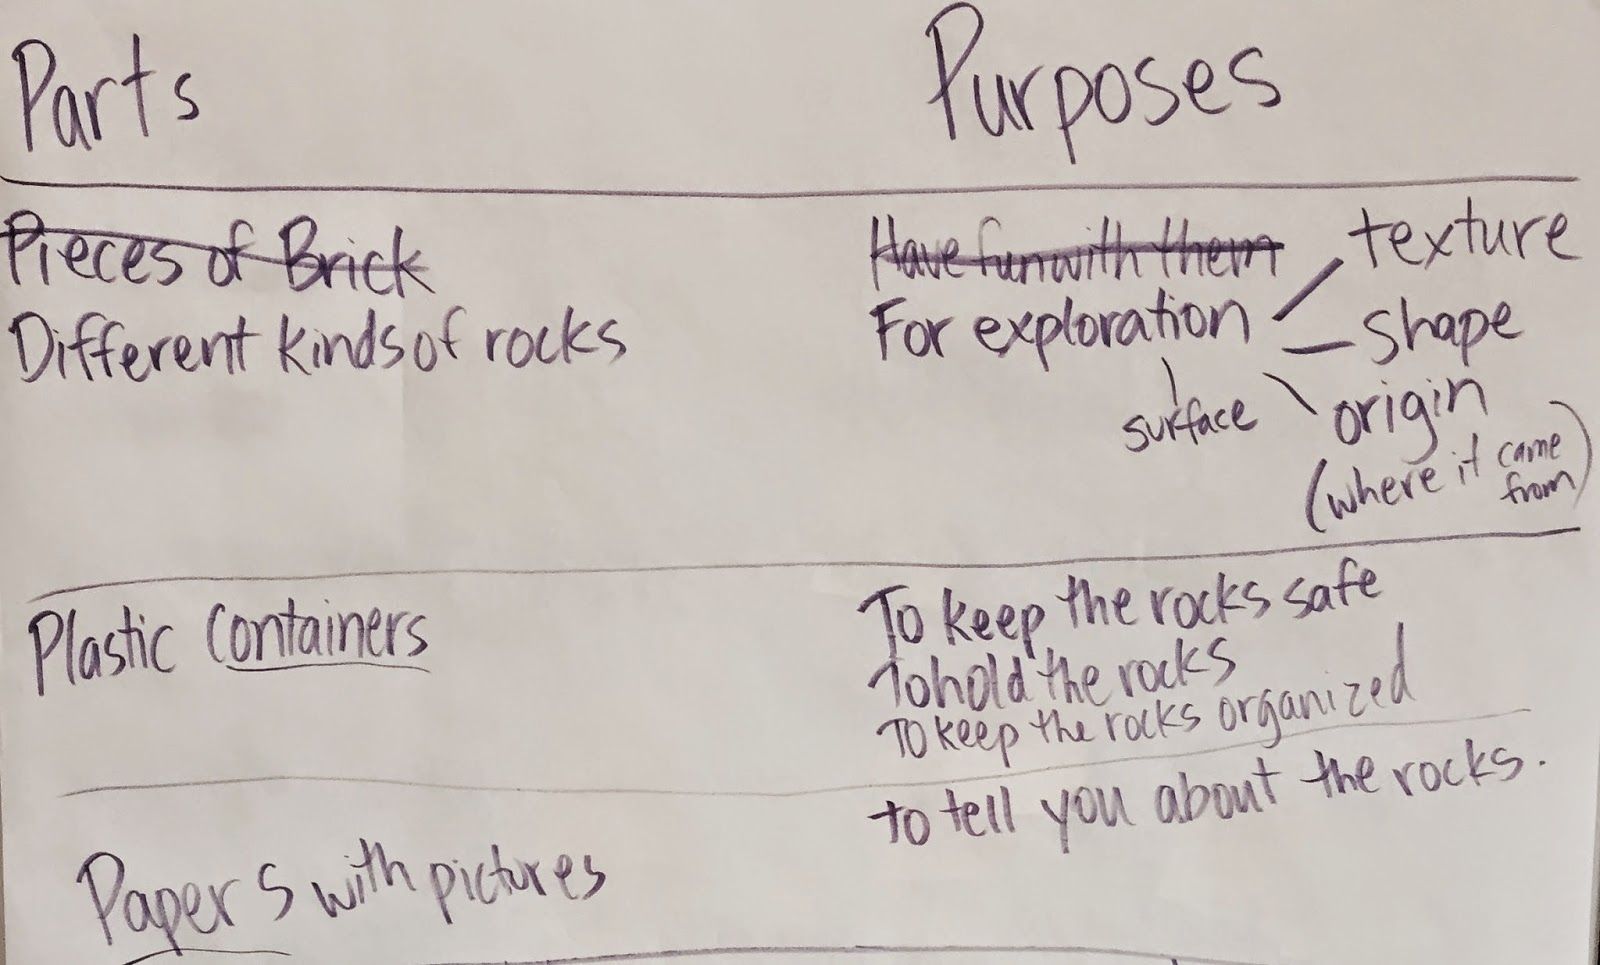 Parts
Purposes
Pieces of Brick
Have fun with them
Different kinds of rocks
For exploration
texture
shape
origin
(where it came from)
surface
Plastic containers
To keep the rocks safe
To hold the rocks
To keep the rocks organized
Papers with pictures
to tell you about the rocks.